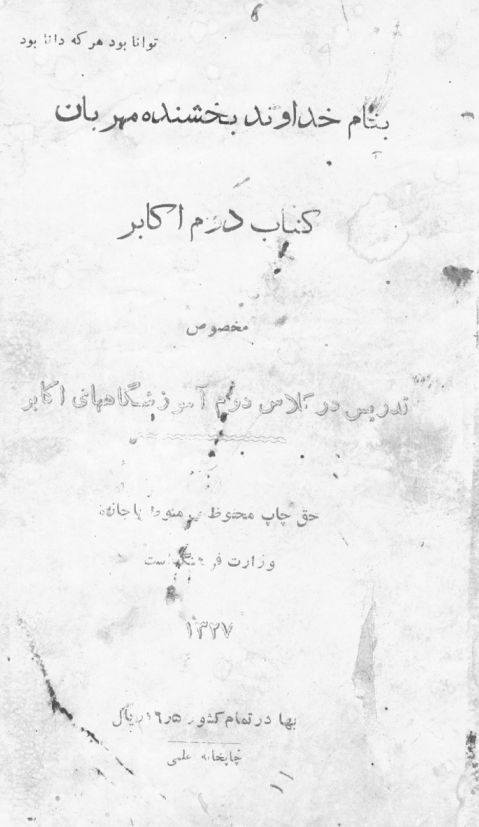 6
توانا بود هر که دانا بود
بنام خداوند بخشنده مهربان
کتاب دوم اکابر
مخصوص
تدریس در کلاس دوم آموزشگاههای اکابر
حق چاپ محفوظ و منوط باجازه
وزارت فرهنگ است
۱۳۲۷
بها در تمام کشور ۱۶٫۵ ریال
چاپخانه علمی